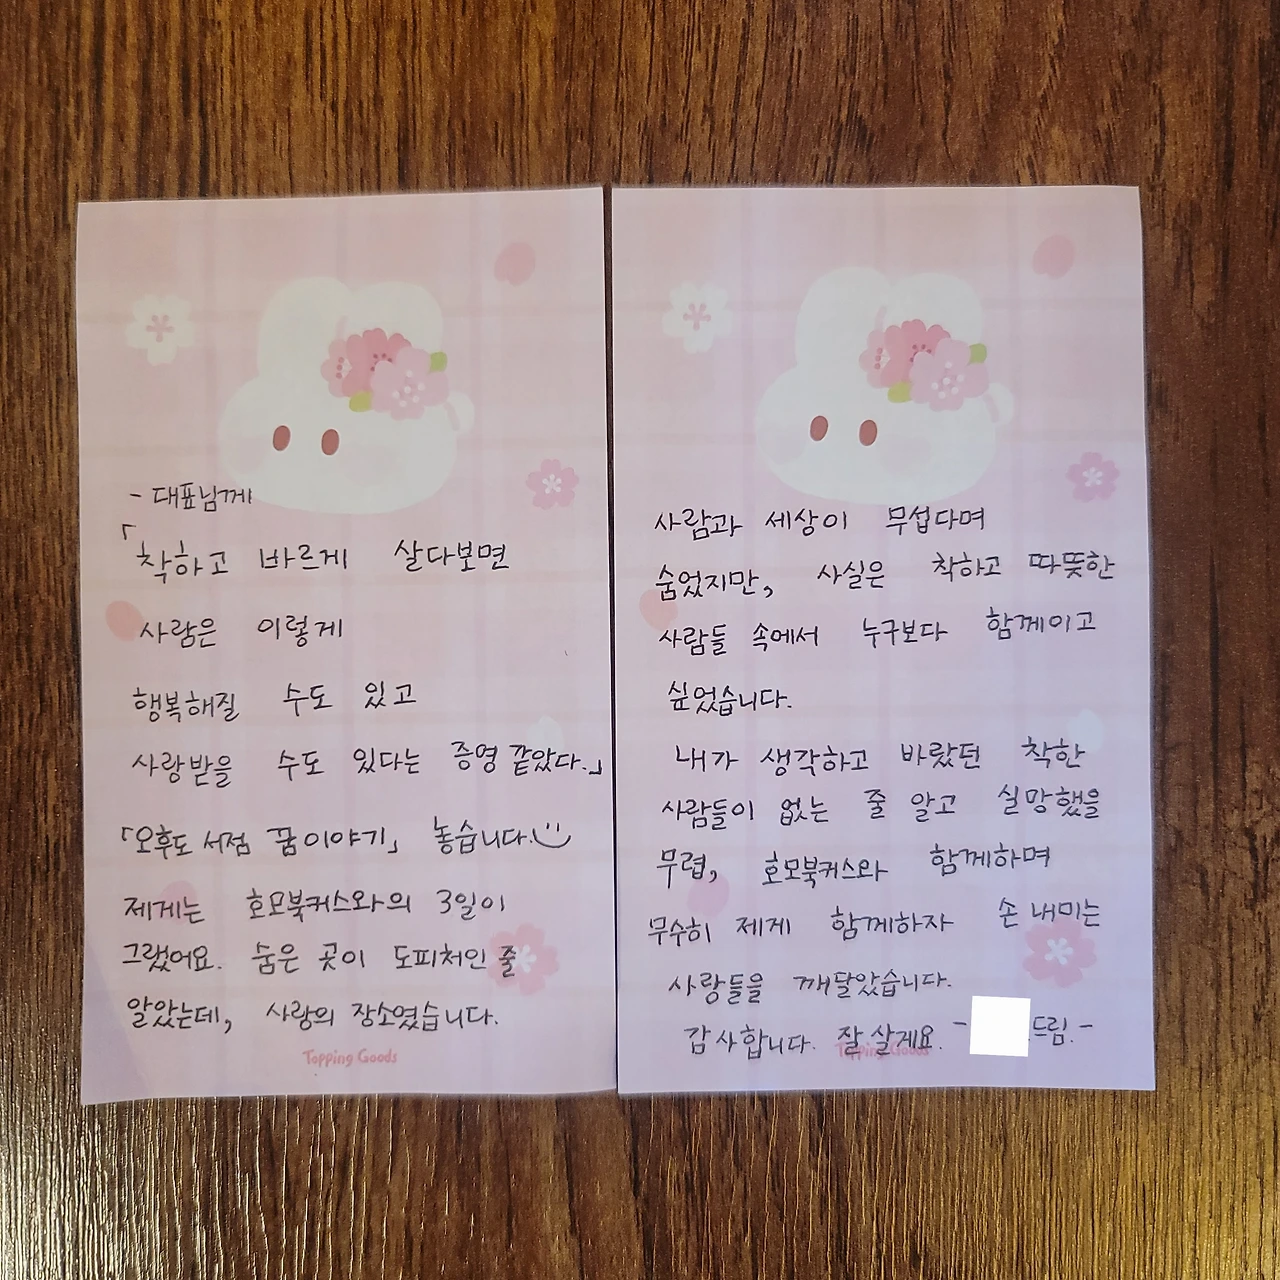 - 대표님께
「착하고 바르게 살다보면
사람은 이렇게
행복해질 수도 있고
사랑받을 수도 있다는 증명 같았다.」
「오후도 서점 꿈 이야기」 놓습니다.
제게는 호모북커스와의 3일이
그랬어요. 숨은 곳이 도피처인 줄
알았는데, 사랑의 장소였습니다.
Topping Goods
사람과 세상이 무섭다며
숨었지만, 사실은 착하고 따뜻한
사람들 속에서 누구보다 함께이고
싶었습니다.
내가 생각하고 바랐던 착한
사람들이 없는 줄 알고 실망했을
무렵, 호모북커스와 함께하며
무수히 제게 함께하자 손 내미는
사랑들을 깨달았습니다.
감사합니다. 잘 살게요. - 드림. -
Topping Goods